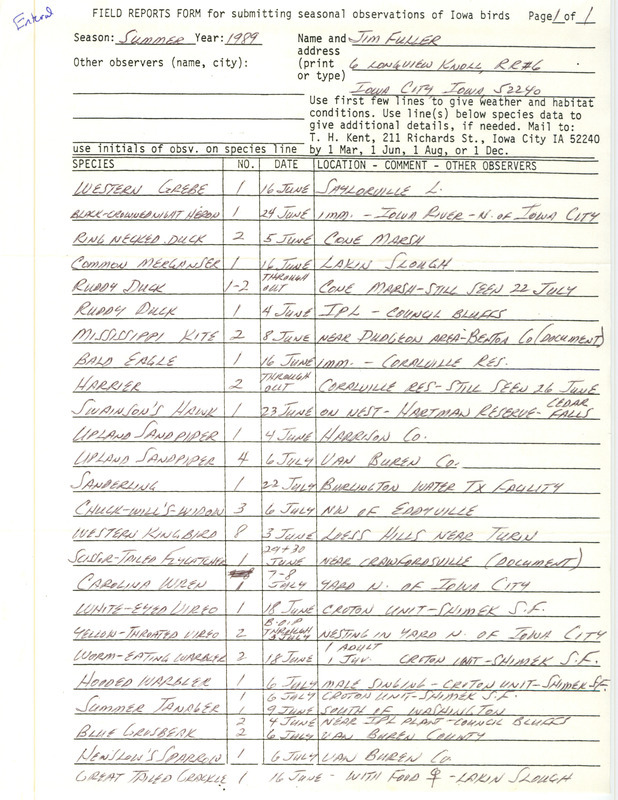 Entered
FIELD REPORTS FORM for submitting seasonal observations of Iowa birds Page 1 of 1
Season: Summer Year: 1989 Name and Jim Fuller
address
Other observers (name, city): (print 6 Longview Knoll, RR#6
or type)
Iowa City, Iowa 52240
Use first few lines to give weather and habitat
conditions. Use line(s) below species data to
give additional details, if needed. Mail to:
T. H. Kent, 211 Richards St., Iowa City IA 52240
use initials of obsv. on species line by 1 Mar, 1 Jun, 1 Aug, or 1 Dec.
SPECIES NO. DATE LOCATION - COMMENT - OTHER OBSERVERS
Western Grebe 1 16 June Saylorville L.
Black-crowned Night Heron 1 24 June imm. - Iowa River - N. of Iowa City
Ring Necked Duck 2 5 June Cone Marsh
Common Merganser 1 16 June Lakin Slough
Ruddy Duck 1-2 Throughout Cone Marsh - still seen 22 July
Ruddy Duck 1 4 June IPL - Council Bluffs
Mississippi Kite 2 8 June near Dudgeon area - Benton Co (document)
Bald Eagle 1 16 June imm. - Coralville Res.
Harrier 2 Throughout Coralville Res - still seen 26 June
Swainson's Hawk 1 23 June on nest - Hartman Reserve - Cedar Falls
Upland Sandpiper 1 4 June Harrison Co.
Upland Sandpiper 4 6 July Van Buren Co.
Sanderling 1 22 July Burlington Water Tx Facility
Chuck-will's-widow 3 6 July NW of Eddyville
Western Kingbird 8 3 June Loess Hills near Turin
Scissor-tailed Flycatcher 1 29+30 June near Crawfordsville (document)
Carolina Wren 1 7-8 July yard N. of Iowa City
White-eyed Vireo 1 18 June Croton Unit - Shimek S.F.
Yellow-throated Vireo 2 B.O.P through July nesting in yard N. of Iowa City
Worm-eating Warbler 2 18 June 1 adult 1 juv. Croton Unit - Shimek S.F.
Hooded Warbler 1 6 July male singing - Croton Unit - Shimek SF
1 6 July Croton Unit - Shimek S.F.
Summer Tanager 1 9 June South of Washington
2 4 June near IPL plant - Council Bluffs
Blue Grosbeak 2 6 July Van Buren County
Henslow's Sparrow 1 6 July Van Buren Co.
Great Tailed Grackle 1 16 June - with food ♀ - Lakin Slough